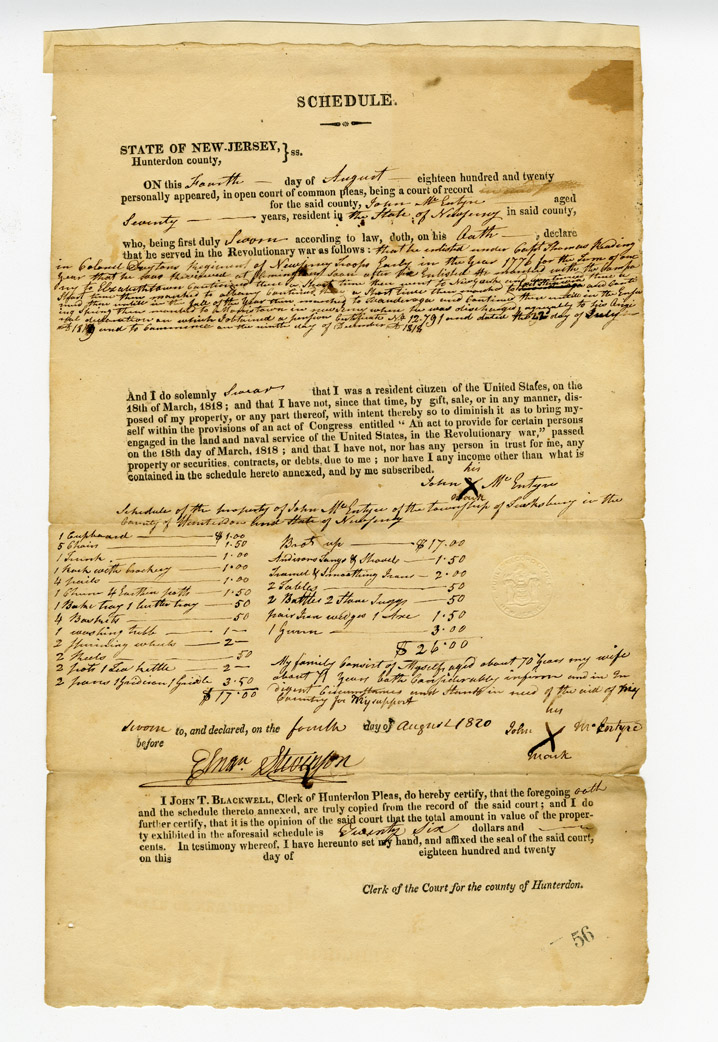 SCHEDULE.
STATE OF NEW-JERSEY, } ss.
Hunterdon county,
ON this Fourth day of August eighteen hundred and twenty
personally appeared, in open court of common pleas, being a court of record
for the said county, John Mc Entyre aged
Seventy years, resident in the State of New Jersey in said county,
who, being first duly Sworn according to law, doth, on his Oath, declare
that he served in the Revolutionary war as follows: that he enlisted under Capt. Thomas Reading
in Colonel Daytons Regiment of New Jersey Troops Early in the Year 1776 for the Term of one
Year that he was Reviewed at soon after he Enlisted He marched with the
to Elizabethtown Continued there a Short time then went to New York
Short time then marched to Albany Continued there a Short time then
until in the fall of the Year then marched to Ticonderoga and Continued there until in the
Spring then marched to Morristown in new jersey when he was discharged,
declaration on which I obtained a pension Certificate No 12.791 and dated the 22 day of July
AD 1819 and to Commence on the ninth day of December AD 1818
And I do solemnly Swear that I was a resident citizen of the United States, on the
18th of March, 1818; and that I have not, since that time, by gift, sale, or in any manner, dis-
posed of my property, or any part thereof, with intent thereby so to diminish it as to bring my-
self within the provisions of an act of Congress entitled "An act to provide for certain persons
engaged in the land and naval service of the United States, in the Revolutionary war," passed
on the 18th day of March, 1818; and that I have not, nor has any person in trust for me, any
property or securities, contracts, or debts, due to me; nor have I any income other than what is
contained in the schedule hereto annexed, and by me subscribed.
his
John X Mc Entyre
mark
Schedule of the property of John Mc Entyre of the township of Tewksbury in the
County of Hunterdon and State of New Jersey
1 Cupboard $1.00
5 Chairs 1.50
1 Trunk 1.00
1 Rack with Crockery 1.00
4 pails 1.00
1 Churn 4 Earthen pots 1.50
1 Bake tray 1 butter tray 50
4 Baskets 50
1 washing tubb 1
2 Spinning wheels 2
2 Reels 50
2 pots 1 Tea kettle 2
2 1 Gridiron 1 Griddle 3.50
$17.00
Brot up $17.00
Andirons Tongs & Shovel 1.50
Tramel & Smoothing Irons 2.00
2 Tables 50
2 Bottles 2 Stone Juggs 50
pair Iron wedges 1 Axe 1.50
1 Gunn 3.00
$26.00
My family Consist of Myself, aged about 70 Years my wife
about 71 Years both Considerably infirm and in In
digent Circumstances and Stands in need of the aid of my
Country for My support
Sworn to, and declared, on the fourth day of August 1820
before
his
John X Mc Entyre
mark
I JOHN T. BLACKWELL, Clerk of Hunterdon Pleas, do hereby certify, that the foregoing oath
and the schedule thereto annexed, are truly copied from the record of the said court; and I do
further certify, that it is the opinion of the said court that the total amount in value of the proper-
ty exhibited in the aforesaid schedule is Twenty Six dollars and
cents. In testimony whereof, I have hereunto set my hand, and affixed the seal of the said court,
on this day of eighteen hundred and twenty
Clerk of the Court for the county of Hunterdon.
56